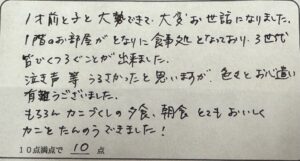 1才前と子と大勢できて大変お世話になりました。
1階のお部屋がとなりに食事処となっており、3世代
皆でくつろぐことが出来ました。
泣き声等うるさかったと思いますが、色々とお心遣い
有難うございました。
もちろんカニづくしの夕食、朝食とてもおいしく
カニをたんのうできました!
10点満点で 10 点